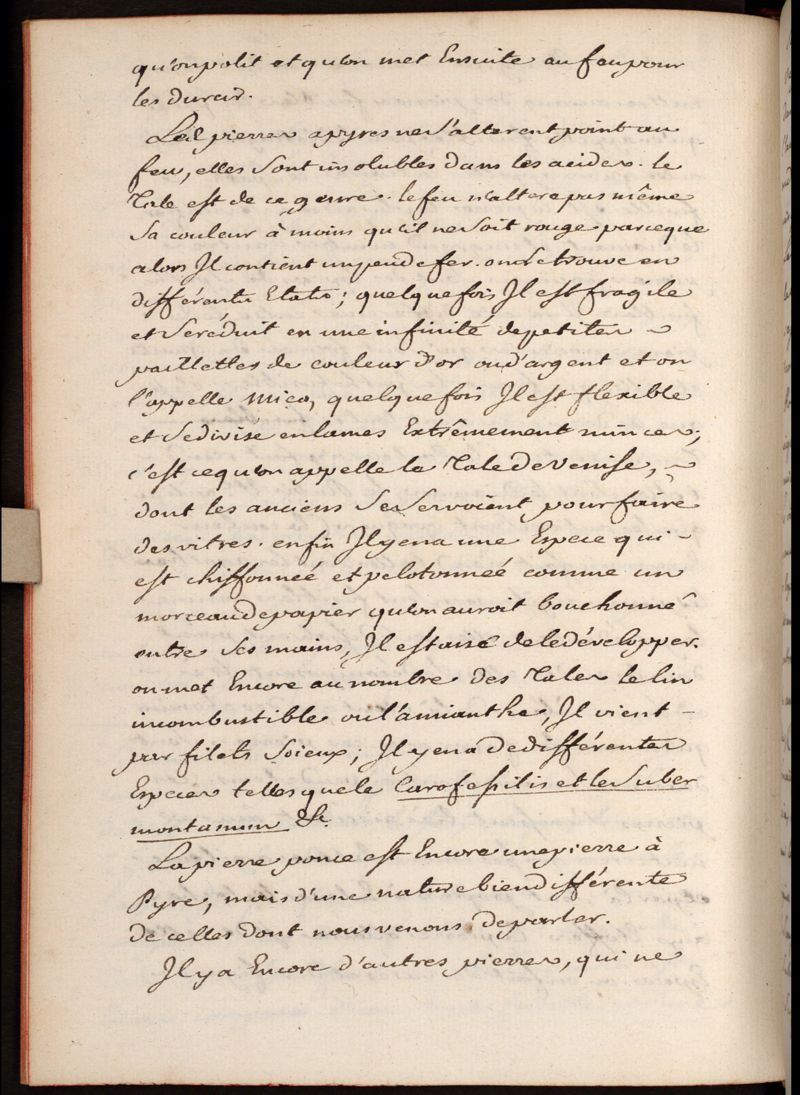 qu'on polit et qu'on met Ensuite au feu pour
les durcir.
Les pierres apyres ne s'alterent point au
feu, elles sont insolubles dans les acides. le
Talc est de ce genre. le feu n'altere pas même
sa couleur à moins qu'il ne soit rouge parceque
alors Il contient un peu de fer. on le trouve en
différents Etats; quelque fois Il est fragile
et se réduit en une infinité de petites ~
paillettes de couleur d'or ou d'argent et on
l'appelle mica, quelque fois Il est flexible
et se divise en lames Extrêmement minces;
c'est ce qu'on appelle le Talc de Venise, ~
dont les anciens se servoient pour faire
des vitres. enfin Il y en a une Espece qui -
est chiffonneé et pelotonneé comme un
morceau de papier qu'on auroit bouchonné
entre ses mains, Il est aisé de le développer.
on met Encore au nombre des Talcs le lin
incombustible ou l'amianthe, Il vient -
par filets soieux; Il y en a de différentes
Especes telles que le Carofesitis et le Suber
montanum &c.
La pierre ponce est Encore une pierre à
Pyre, mais d'une nature bien différente
de celles dont nous venons de parler.
Il y a Encore d'autres pierres, qui ne